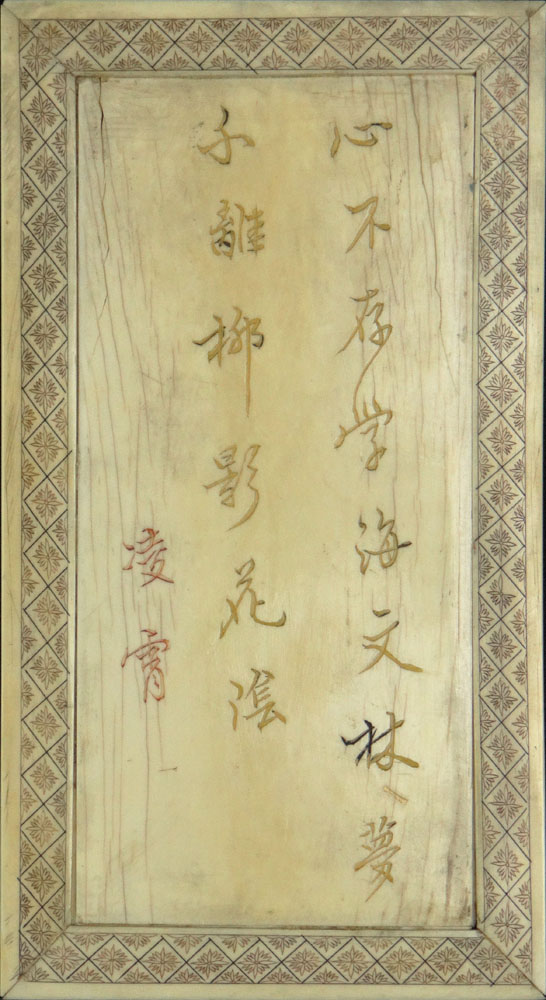 心不存学海文林夢
不離柳影花陰
凌霄